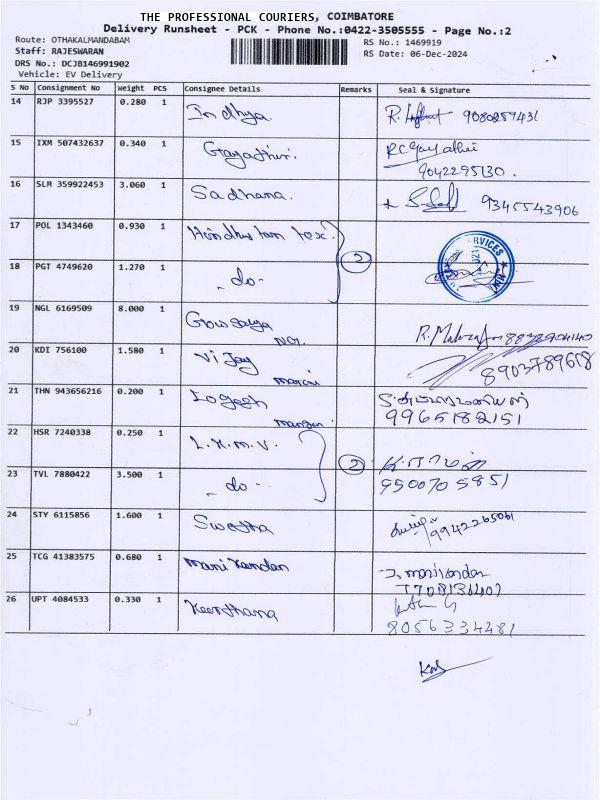 THE PROFESSIONAL COURIERS, COIMBATORE
Delivery Runsheet - PCK - Phone No.:0422-3505555 - Page No.:2
Route: OTHAKALMANDABAM
RS No.: 1469919
Staff: RAJESWARAN
RS Date: 06-Dec-2024
DRS No.: DCJB146991902
Vehicle: EV Delivery
S No Consignment No Weight PCS Consignee Details Remarks Seal & Signature
14 RJP 3395527 0.280 1 Indhya 9080259431
15 IXM 507432637 0.340 1 Gayathiri. R.C. Gayathri
9042295130.
16 SLM 359922453 3.060 1 Sadhana. 9345543906
17 POL 1343460 0.930 1 Hindhustan tex. 2
18 PGT 4749620 1.270 1 - do -
19 NGL 6169509 8.000 1 NGL
20 KDI 756100 1.580 1 Vijay 8903789618
21 THN 943656216 0.200 1 Logesh
9965182151
22 HSR 7240338 0.250 1 L.K.M.V. 2
23 TVL 7880422 3.500 1 - do - 9500705851
24 STY 6115856 1.600 1 Swetha 9942265061
25 TCG 41383575 0.680 1 Manikandan J. Manikandan
26 UPT 4084533 0.330 1 Keerthana
8056334481